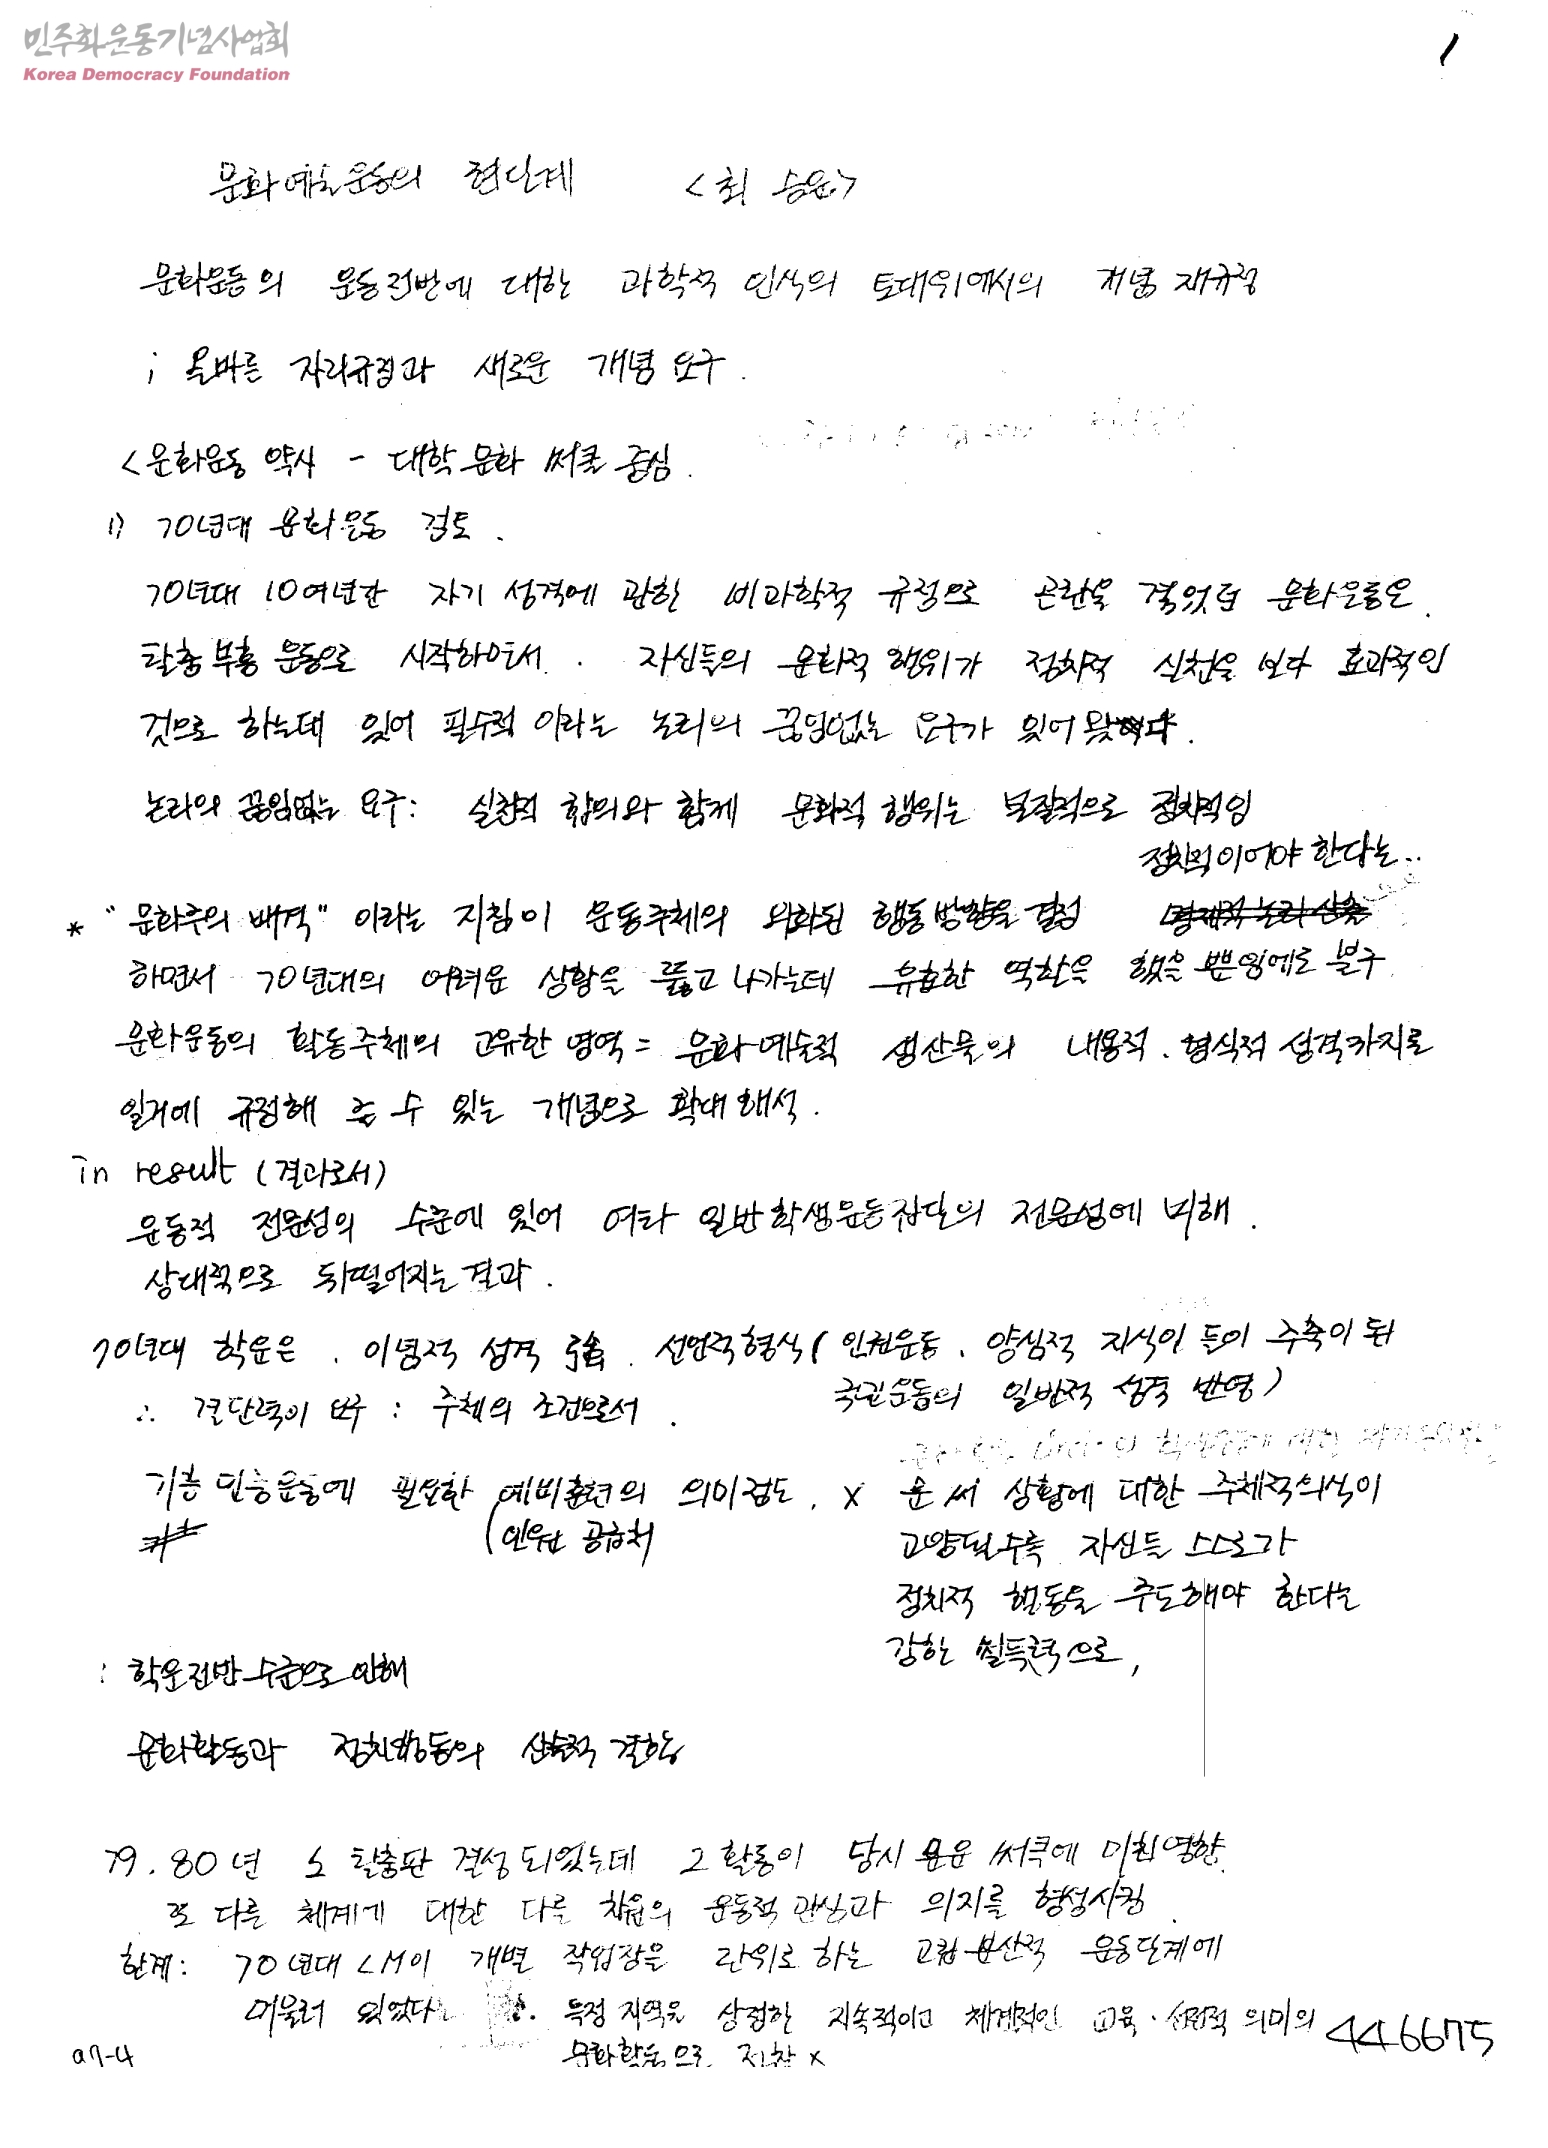 민주화운동기념사업회
Korea Democracy Foundation
1
문화예술운동의 현단계 <최 승운>
문화운동의 운동전반에 대한 과학적 인식의 토대위에서의 개념 재규정
; 올바른 자리규정과 새로운 개념 요구.
<문화운동 약사 - 대학 문화 써클 중심.
1) 70년대 문화운동 검토.
70년대 10여년간 자기 성격에 관한 비과학적 규정으로 곤란을 겪었던 문화운동은.
탈춤 부흥 운동으로 시작하면서. 자신들의 문화적 행위가 정치적 실천을 보다 효과적인
것으로 하는데 있어 필수적 이라는 논리의 끊임없는 요구가 있어 왔다.
논리의 끊임없는 요구: 실천적 합의와 함께 문화적 행위는 본질적으로 정치적임
정치적이어야 한다는..
* "문화주의 배격" 이라는 지침이 운동주체의 외화된 행동방향을 결정
하면서 70년대의 어려운 상황을 뚫고 나가는데 유효한 역할을 했을 뿐임에도 불구
문화운동의 활동주체의 고유한 영역 = 문화예술적 생산물의 내용적. 형식적 성격까지로
일거에 규정해 줄 수 있는 개념으로 확대 해석.
in result (결과로서)
운동적 전문성의 수준에 있어 여타 일반학생운동집단의 전문성에 비해.
상대적으로 뒤떨어지는 결과.
70년대 학운은. 이념적 성격 强. 선언적형식 (인권운동. 양심적 지식인 등이 주축이 된
국권운동의 일반적 성격 반영)
∴ 결단력이 요구 : 주체의 조건으로서.
기층 민중운동에 필요한 예비훈련의 의미정도. x 문 써 상황에 대한 주체적의식이
(인원 공급처
고양될수록 자신들 스스로가
정치적 행동을 주도해야 한다는
강한 설득력으로,
: 학운전반 수준으로 인해
문화활동과 정치행동의 산술적 결합
79. 80년 소 탈춤판 결성 되었는데 그 활동이 당시 문운 써클에 미친영향.
또 다른 체계에 대한 다른 차원의 운동적 관심과 의지를 형성시킴.
한계: 70년대 LM이 개별 작업장을 단위로 하는 고립 분산적 운동단계에
머물러 있었다는 특정 지역을 상정한 지속적이고 체계적인 교육. 선전적 의미의
문화활동으로 진착 x
a7-4
446675